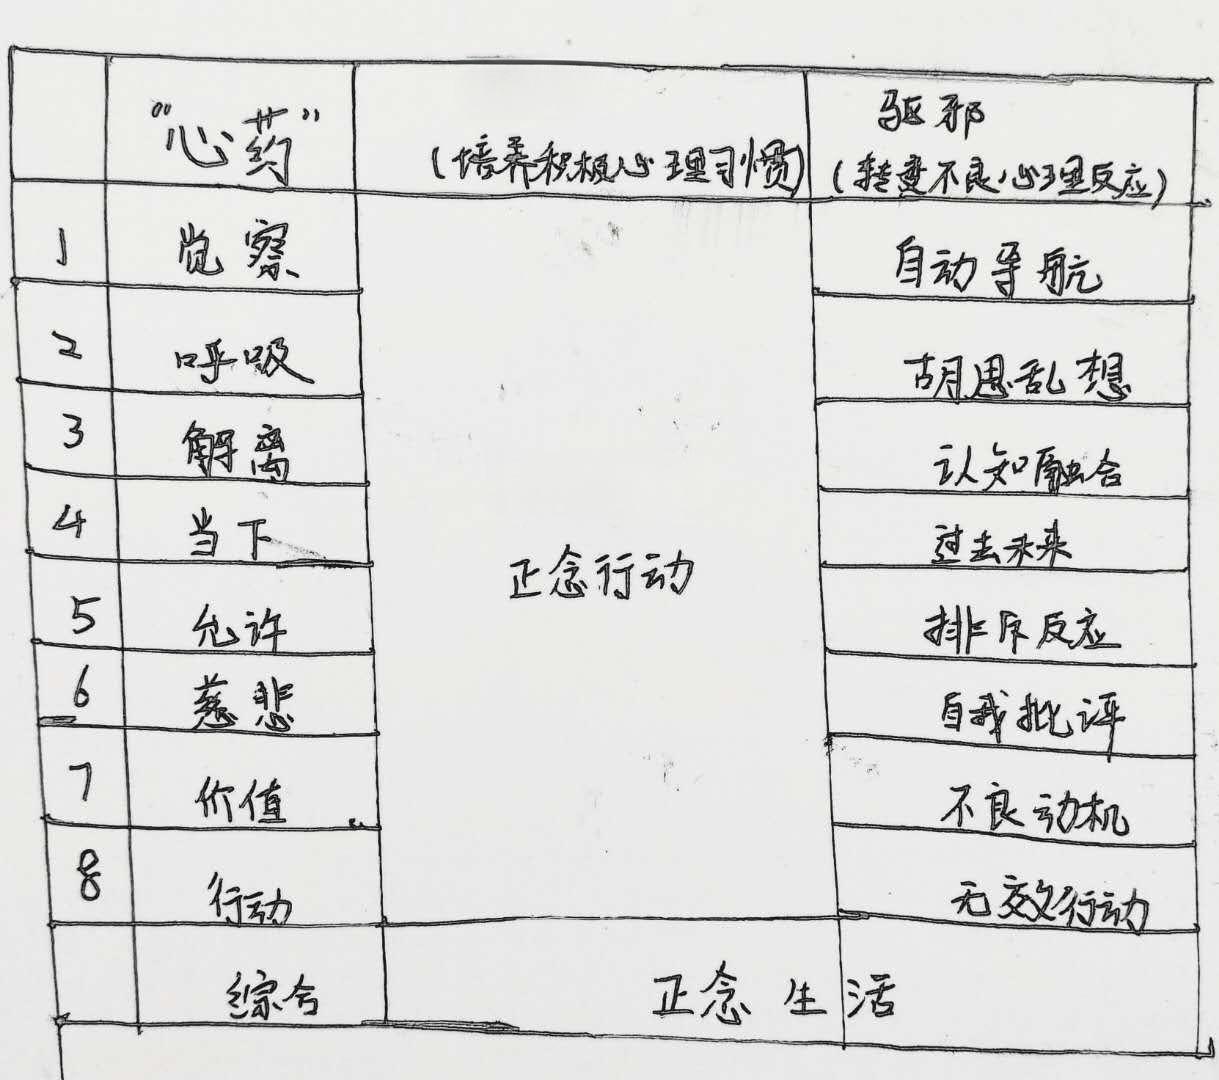 “心药”
(培养积极心理习惯)
驱邪
(转变不良心理反应)
1 觉察 自动导航
2 呼吸 胡思乱想
3 解离 认知融合
4 当下 过去未来
正念行动
5 允许 排斥反应
6 慈悲 自我批评
7 价值 不良动机
8 行动 无效行动
综合 正念生活